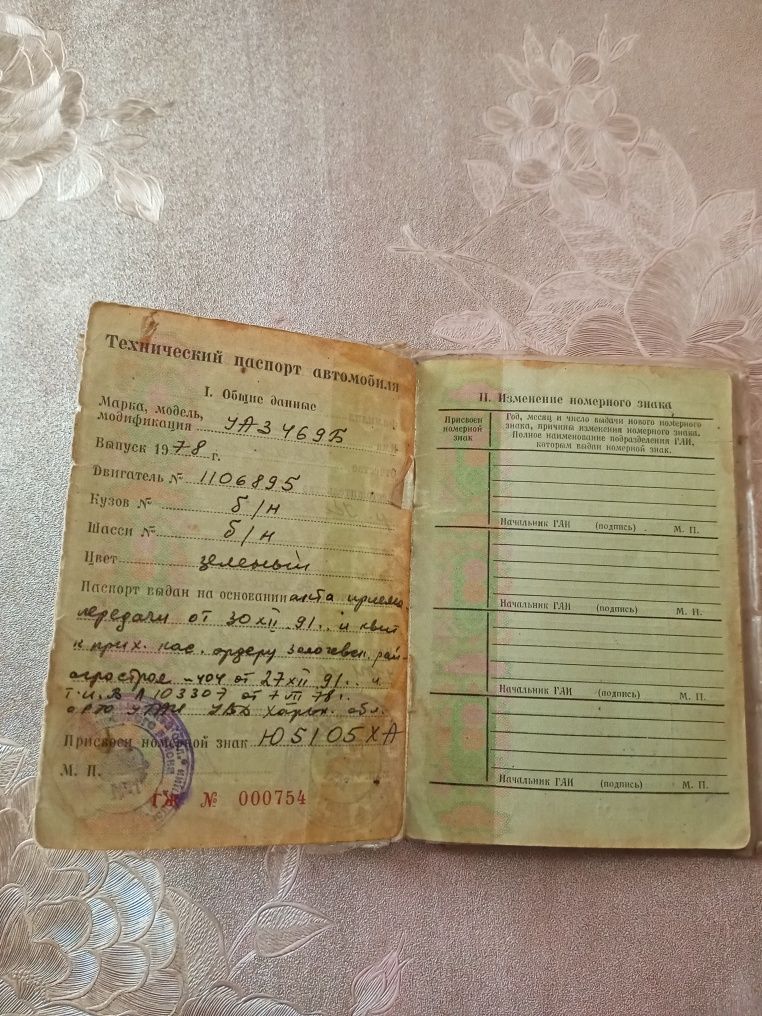 Технический паспорт автомобиля
I. Общие данные
Марка, модель,
модификация УАЗ 469Б
Выпуск 1978 г.
Двигатель № 1106895
Кузов № б/н
Шасси № б/н
Цвет зеленый
Паспорт выдан на основании акта приема
передачи от 30 XII 91.. и квит
к прих. кас. ордеру золочевск. рай-
агростроя -404 от 27 XII 91.. и
т.п. 103307 от 7 VII 78г.
УВД Харьк. обл.
Присвоен номерной знак Ю5105ХА
М. П.
ГЖ № 000754
II. Изменение номерного знака
Присвоен
номерной
знак
Год, месяц и число выдачи нового номерного
знака, причины изменения номерного знака.
Полное наименование подразделения ГАИ,
которым выдан номерной знак.
Начальник ГАИ (подпись) М. П.
Начальник ГАИ (подпись) М. П.
Начальник ГАИ (подпись) М. П.
Начальник ГАИ (подпись) М. П.